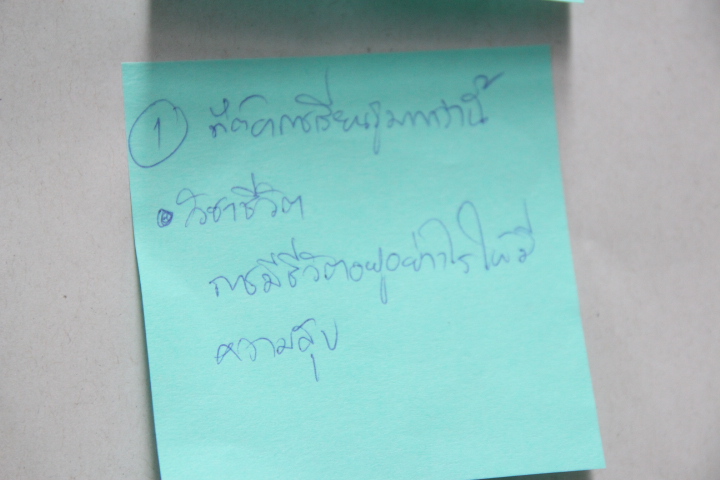 ① ที่ต้องการเรียนรู้มากกว่านี้
• วิชาชีวิต
การมีชีวิตอยู่อย่างไรให้มี
ความสุข